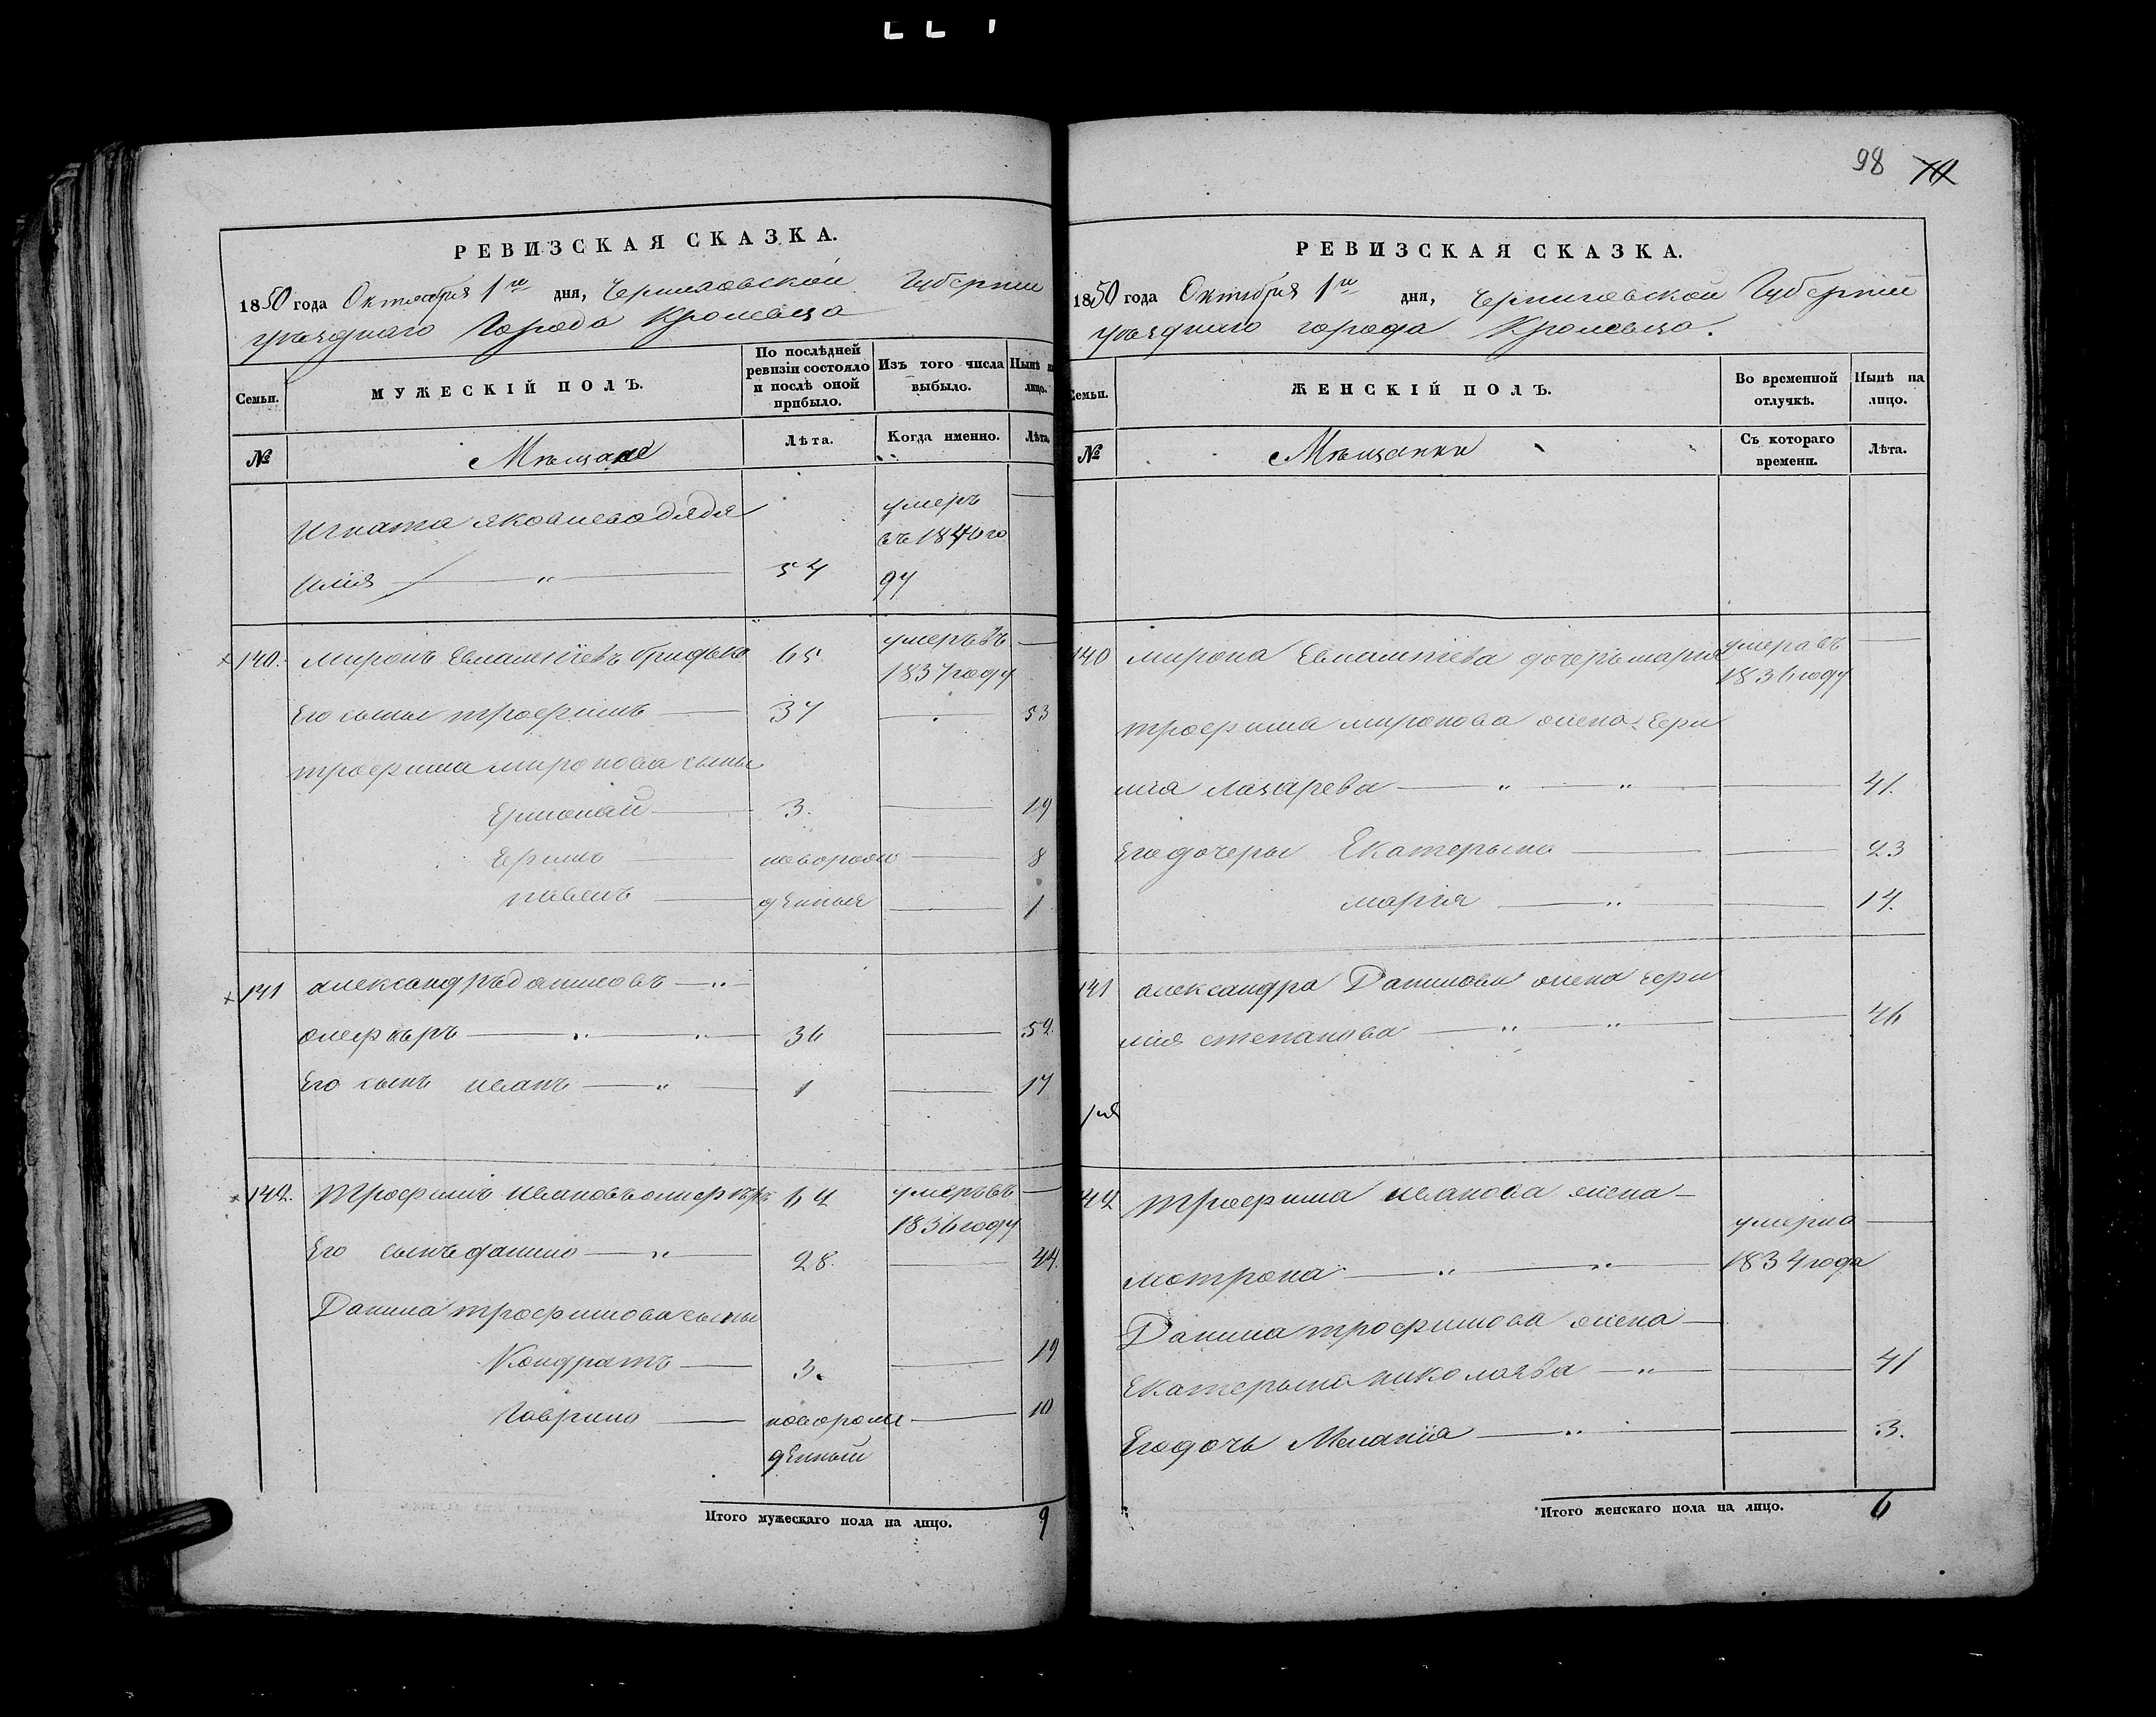 98
РЕВИЗСКАЯ СКАЗКА.
1850 года Октября 1го дня, Черниговской Губерніи
уѣзднаго Города Кролевца
Семьи.
МУЖЕСКІЙ ПОЛЪ.
По послѣдней ревизіи состояло и послѣ оной прибыло.
Изъ того числа выбыло.
Нынѣ на лицо.
№
Мѣщане
Лѣта.
Когда именно.
Лѣта.
Игната Яковлева дядя
умеръ
въ 1846 го
Илія 54
ду
140. Миронъ Евлампіевъ 65 умеръ въ —
1837 году
Его сынъ трофимъ — 37 — 53
трофима миронова сыны
Ермолай — 3. — 19
Ефимъ — новорож — 8
павелъ — денныя — 1
141 александръ даниловъ —
36 — 52.
Его сынъ иванъ — 1 — 17
142. Трофимъ ивановъ 64 умеръ въ —
1836 году
Его сынъ данило — 28. — 44.
Данила трофимова сыны
Кондратъ — 3. — 19
Гаврило — новорож — 10
денный
Итого мужескаго пола на лицо. 9
РЕВИЗСКАЯ СКАЗКА.
1850 года Октября 1го дня, Черниговской Губерніи
уѣзднаго города Кролевца.
Семьи.
ЖЕНСКІЙ ПОЛЪ.
Во временной отлучкѣ.
Нынѣ на лицо.
№
Мѣщанки
Съ котораго времени.
Лѣта.
140 мирона Евлампіева дочерь марія умера въ —
1836 году
трофима миронова жена Ефи
мія Лазарева — — 41.
Его дочеры Екатерына — — 23
марія — — 14.
141 александра Данилова жена Ефи
мія степанова — — 46
142 Трофима иванова жена —
умерла —
мотрона — 1834 года
Данила трофимова жена —
Екатерына николаева — — 41
Его дочь Меланіа — — 3.
Итого женскаго пола на лицо. 6